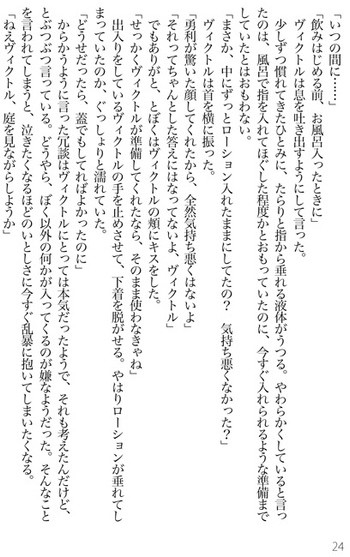 「いつの間に……」
「飲みはじめる前、お風呂入ったときに」
　ヴィクトルは息を吐き出すようにして言った。
　少しずつ慣れてきたひとみに、たらりと指から垂れる液体がうつる。やわらかくしていると言っ
たのは、風呂で指を入れてほぐした程度かとおもっていたのに、今すぐ入れられるような準備まで
していたとはおもわない。
「まさか、中にずっとローション入れたままにしてたの？　気持ち悪くなかった？」
　ヴィクトルは首を横に振った。
「勇利が驚いた顔してくれたから、全然気持ち悪くはないよ」
「それってちゃんとした答えにはなってないよ、ヴィクトル」
　でもありがと、とぼくはヴィクトルの頬にキスをした。
「せっかくヴィクトルが準備してくれたなら、そのまま使わなきゃね」
　出入りをしているヴィクトルの手を止めさせて、下着を脱がせる。やはりローションが垂れてし
まっていたのか、ぐっしょりと濡れていた。
「どうせだったら、蓋でもしてればよかったのに」
　からかうように言った冗談はヴィクトルにとっては本気だったようで、それも考えたんだけど、
とぶつぶつ言っている。どうやら、ぼく以外の何かが入ってくるのが嫌なようだった。そんなこと
を言われてしまうと、泣きたくなるほどのいとしさに今すぐ乱暴に抱いてしまいたくなる。
「ねえヴィクトル、庭を見ながらしようか」
24